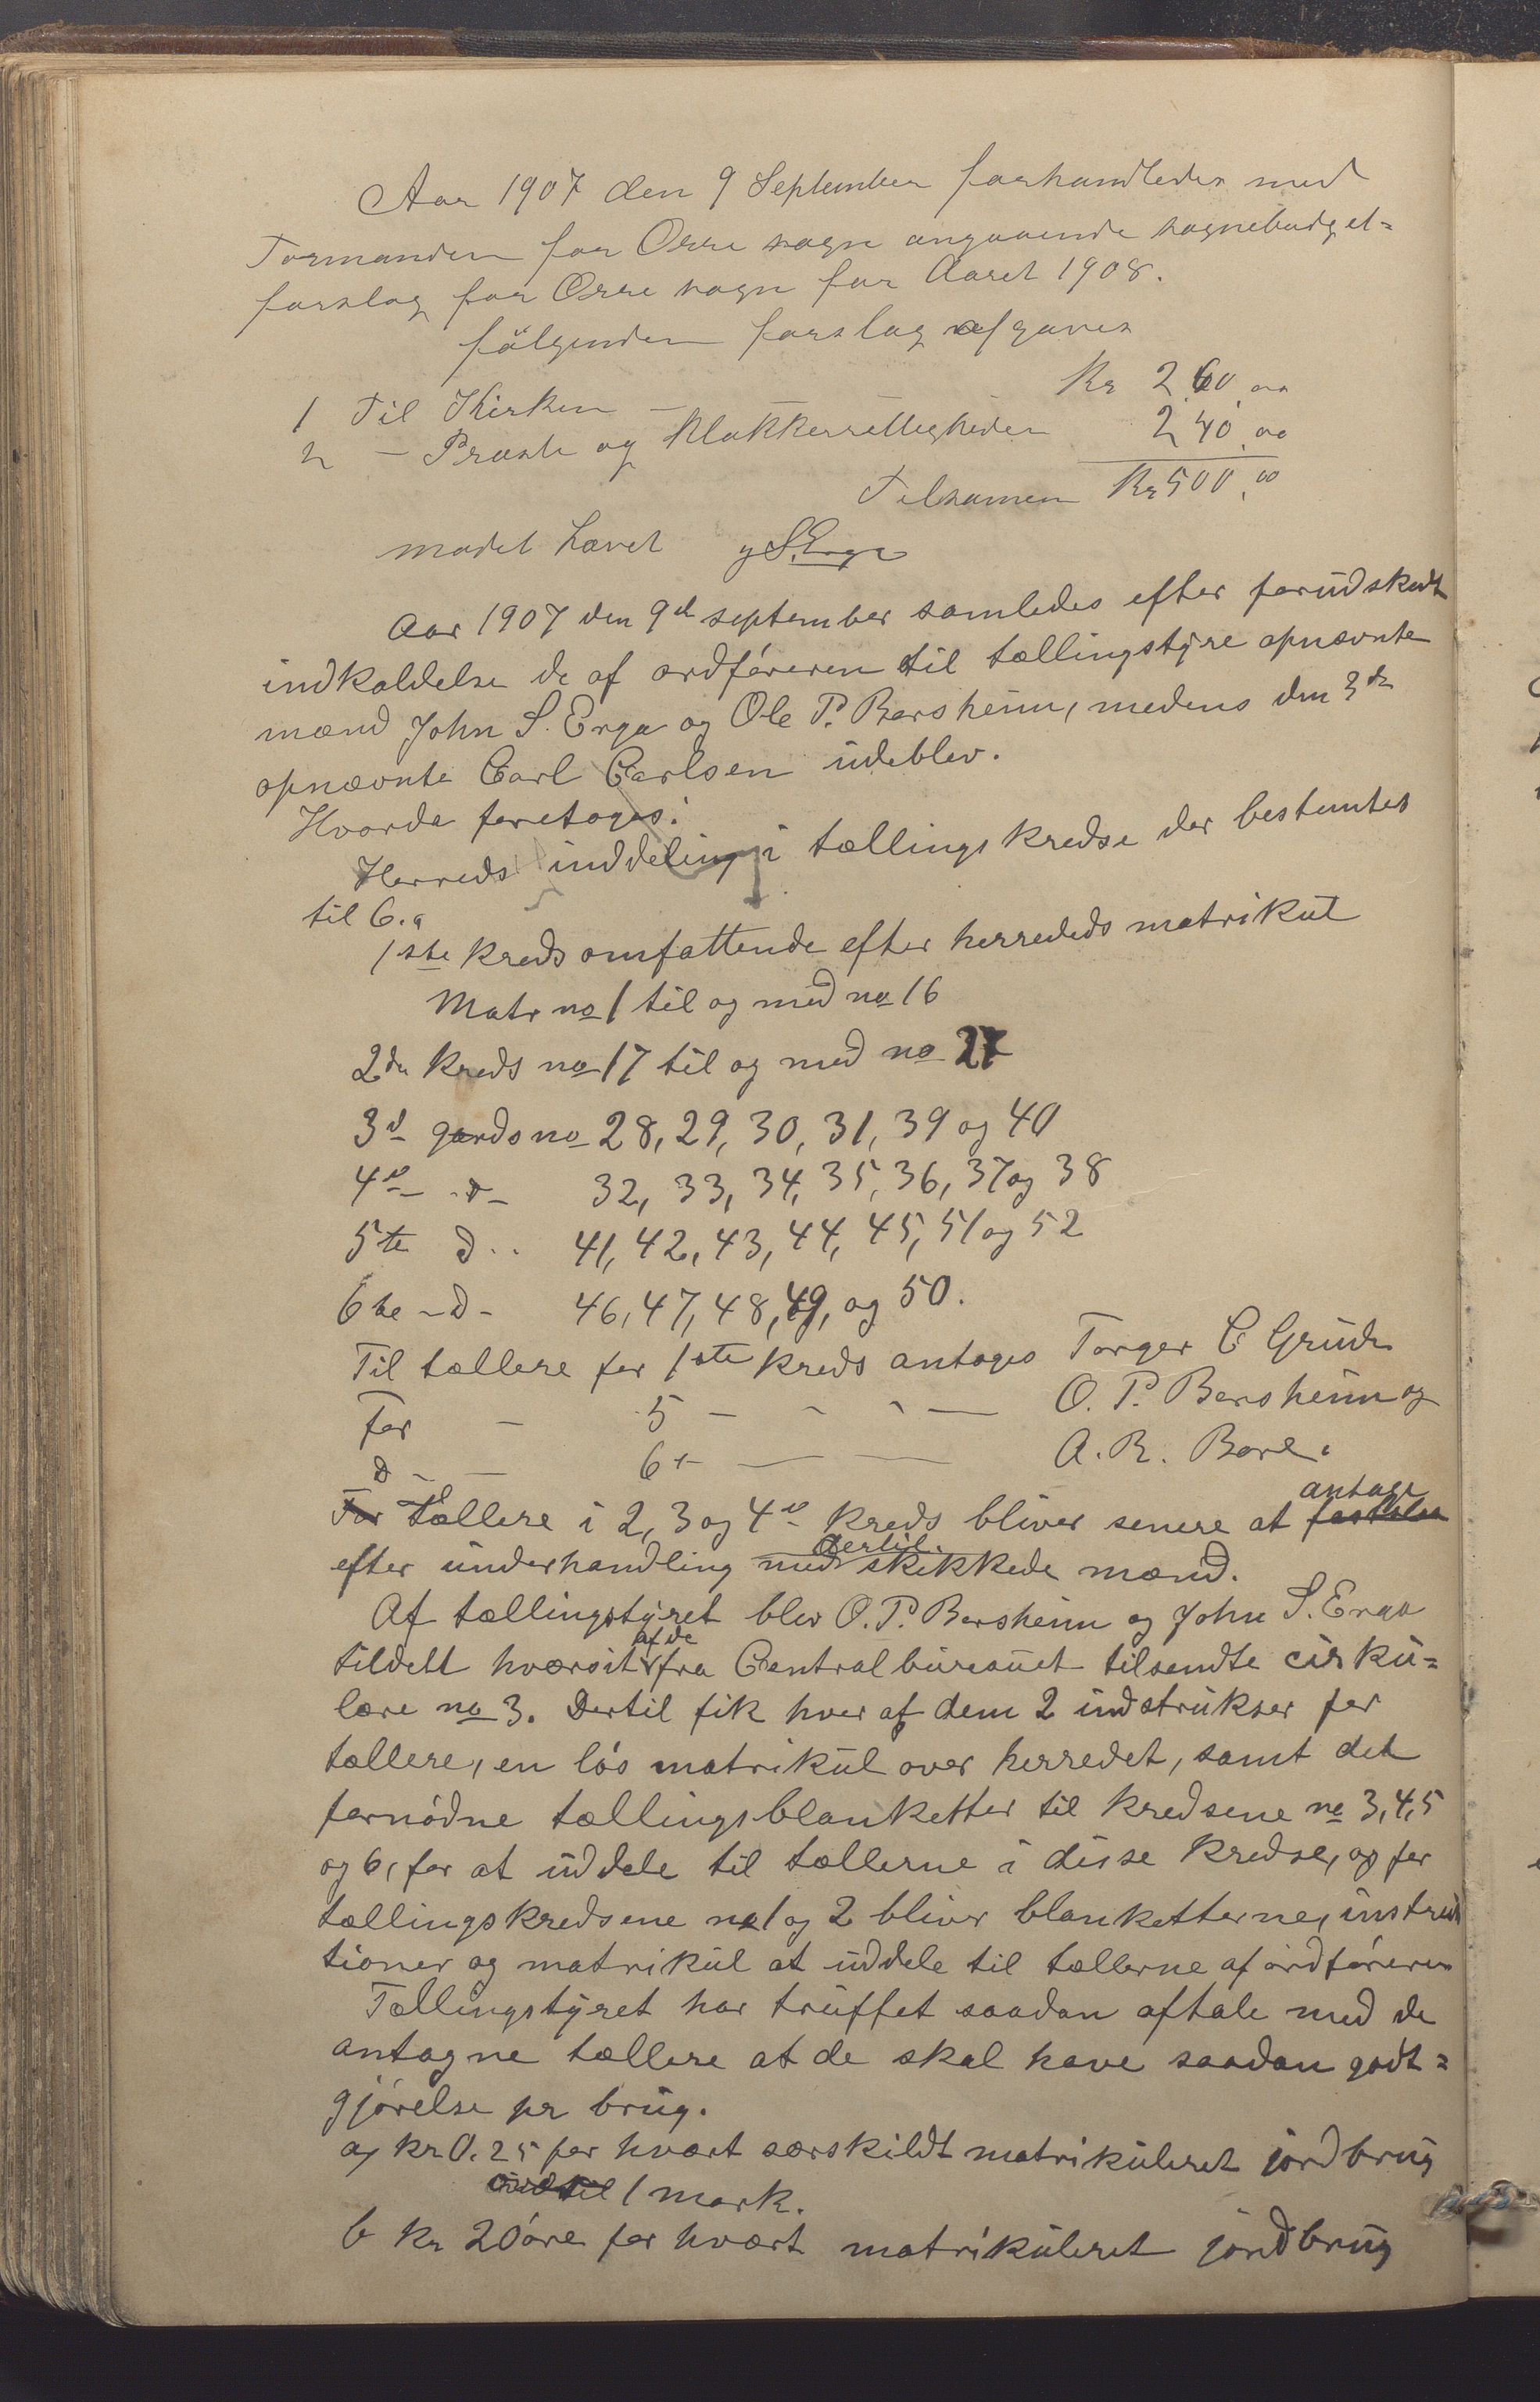 Aar 1907 den 9 September forhandledes med
Formanden for Orre sogn angaaende sognebudget-
forslag for Orre sogn for Aaret 1908.
fölgenden forslag afgaves
1 Til Kirken - Kr 260,00
2 - Præste og Klokkerrettigheder 240,00
Tilsamen Kr 500,00
modet hævet J S. Erga
Aar 1907 den 9de september samledes efter forudskedt
indkaldelse de af ordføreren til tællingstyre opnævnte
mænd John S. Erga og Ole P. Borsheim, medens den 3de
opnævnte Carl Carlsen udeblev.
Hvorda foretoges:
Herreds inddeling i tællingskredse der bestemtes
til 6.
1ste kreds omfattende efter herrededs matrikul
Matr no 1 til og med no 16
2den kreds no 17 til og med no 27
3d gardsno 28, 29, 30, 31, 39 og 40
4de -d- 32, 33, 34, 35, 36, 37 og 38
5te d.. 41, 42, 43, 44, 45, 51 og 52
6te -d- 46, 47, 48, 49, og 50.
Til tællere for 1ste kreds antages Torger C Grude
For - 5 - - - - O. P. Borsheim og
d - - 6 - - - A. R. Bore.
For Tællere i 2, 3 og 4de kreds bliver senere at antage
efter underhandling med dertil skikkede mænd.
Af tællingstyret blev O. P. Borsheim og John S. Erga
tildelt hværsit af de fra Centralbureauet tilsendte cirku-
lære no 3. Dertil fik hver af dem 2 indstrukser for
tællere, en løs matrikul over herredet, samt det
fornødne tællingsblanketter til kredsene no 3, 4, 5
og 6, for at uddele til tællerne i disse kredse, og for
tællingskredsene no 1 og 2 bliver blanketterne, instruk
tioner og matrikul at uddele til tællerne af ordføreren
Tællingstyret har truffet saadan aftale med de
antagne tællere at de skal have saadan godt-
gjørelse pr brug.
a, kr 0.25 for hvært særskildt matrikuleret jordbrug
1 mark.
b kr 20 øre for hvært matrikuleret jordbrug